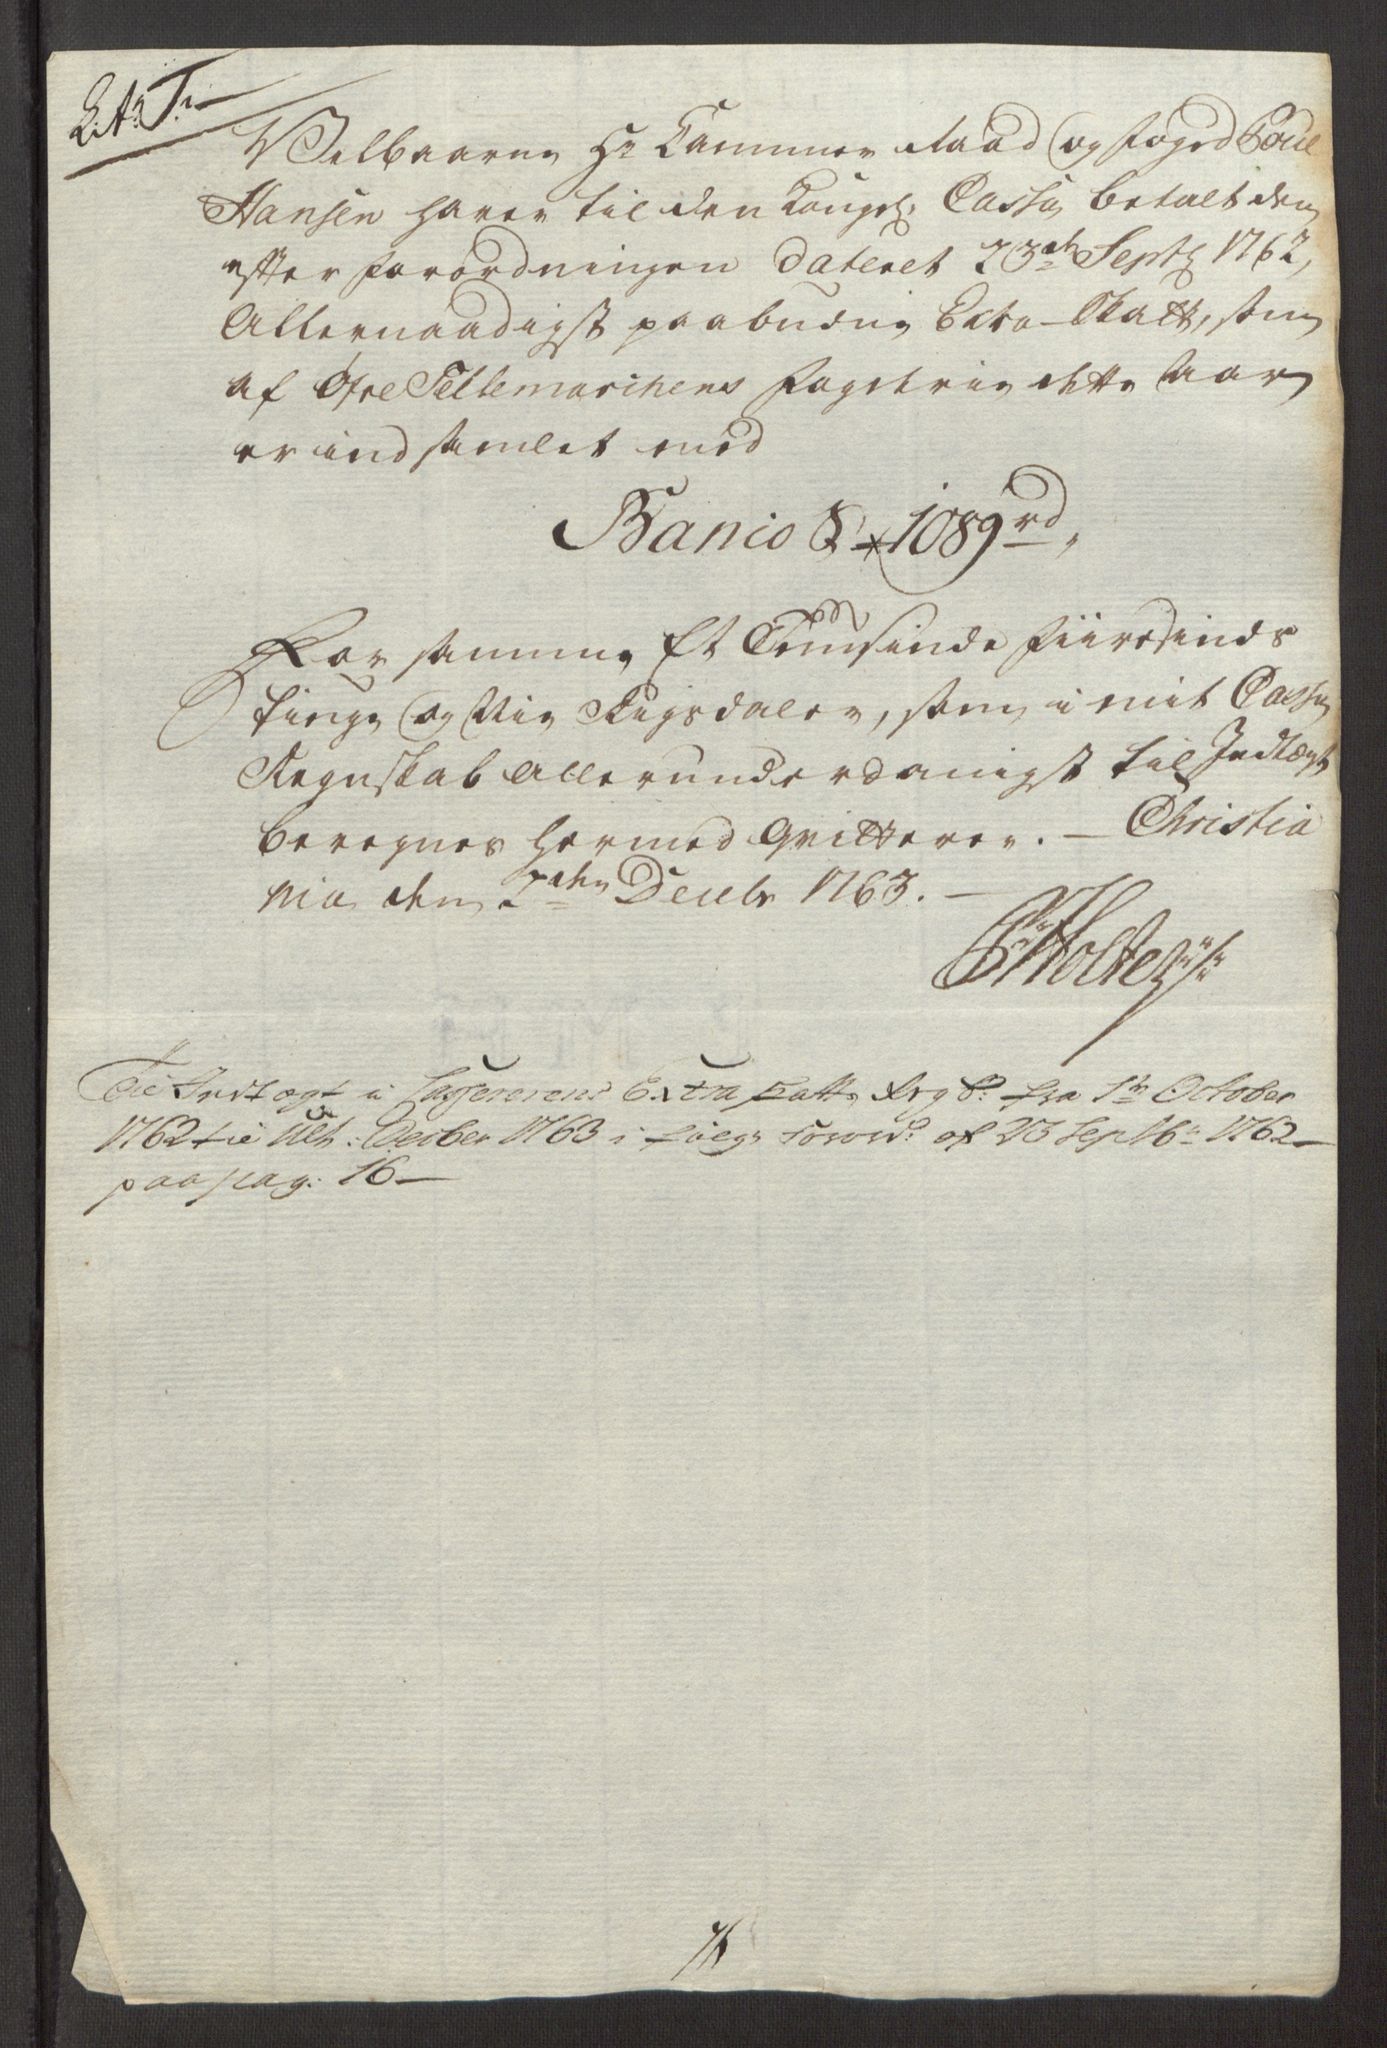 Lit: T:
Velbaarne Hr Cammer Raad og foged Poul
Hansen haver til den Kongel: Cassa betalt den
efter forordningen dateret 23de Septr 1762,
Allernaadigst paabudne Extra-Skatt, som
af Øfre Tellemarchens fogderie dette Aar
er indsamlet med
Banco 1089 rd,
For samme Et Tousinde fiiresinds
tiuge og Nie Rigsdaler, som i mit Cassa
Regnskab allerunderdanigst til Indtægt
beregnes hermed Qvitterer. — Christia
nia den 2den Decebr 1763. —
Holter
Til Indtægt i Casserens Extra skatte Regns: fra 1te October
1762 til Ult: Decber 1763 i følge forord: af 23 Septbr 1762 —
paa pag: 16 —